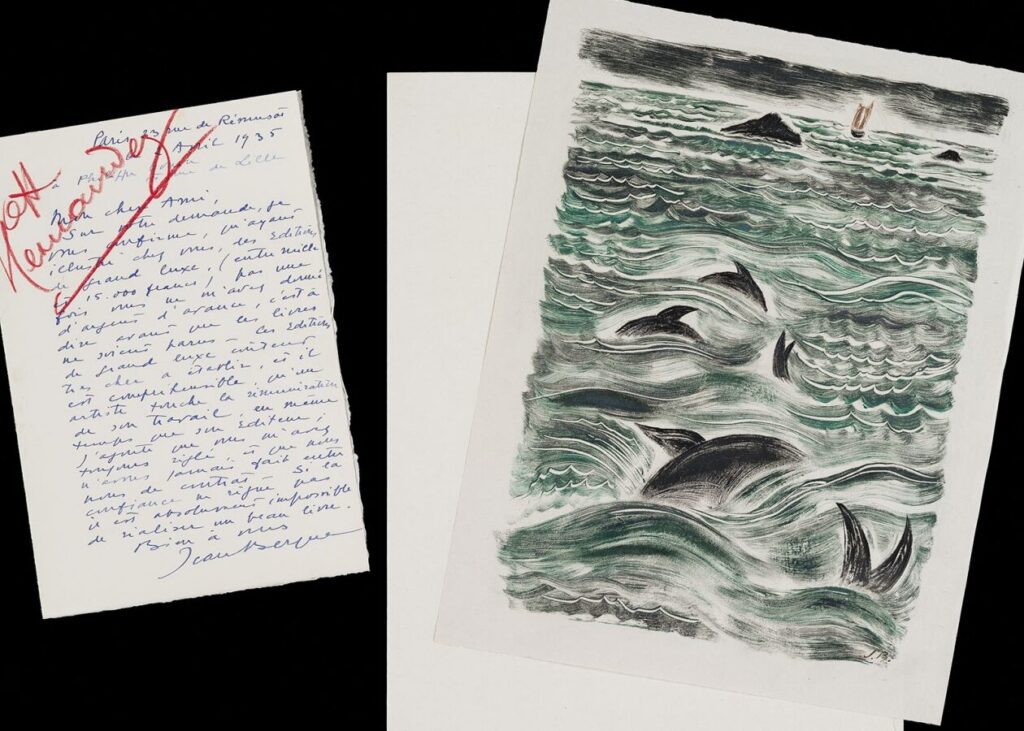 Paris 23 rue de Rémusat
Avril 1935
à Philippe rue de Lille
Mon cher Ami,
Sur votre demande, je
vous confirme, qu'ayant
illustré chez vous, des Editions
de grand luxe, (entre mille
et 15.000 francs) pas une
fois vous ne m'avez donné
d'argent d'avance, c'est à
dire avant que les livres
ne soient parus – Les Editions
de grand luxe coûtent
très cher à établir, et il
est compréhensible, qu'un
artiste touche la rémunération
de son travail, en même
temps que son Editeur ;
J'ajoute que vous m'avez
toujours réglé, et que nous
n'avons jamais fait entre
nous de contrat – Si la
confiance ne règne pas
il est absolument impossible
de réaliser un beau livre.
Bien à vous
Jean Berque
J.B.